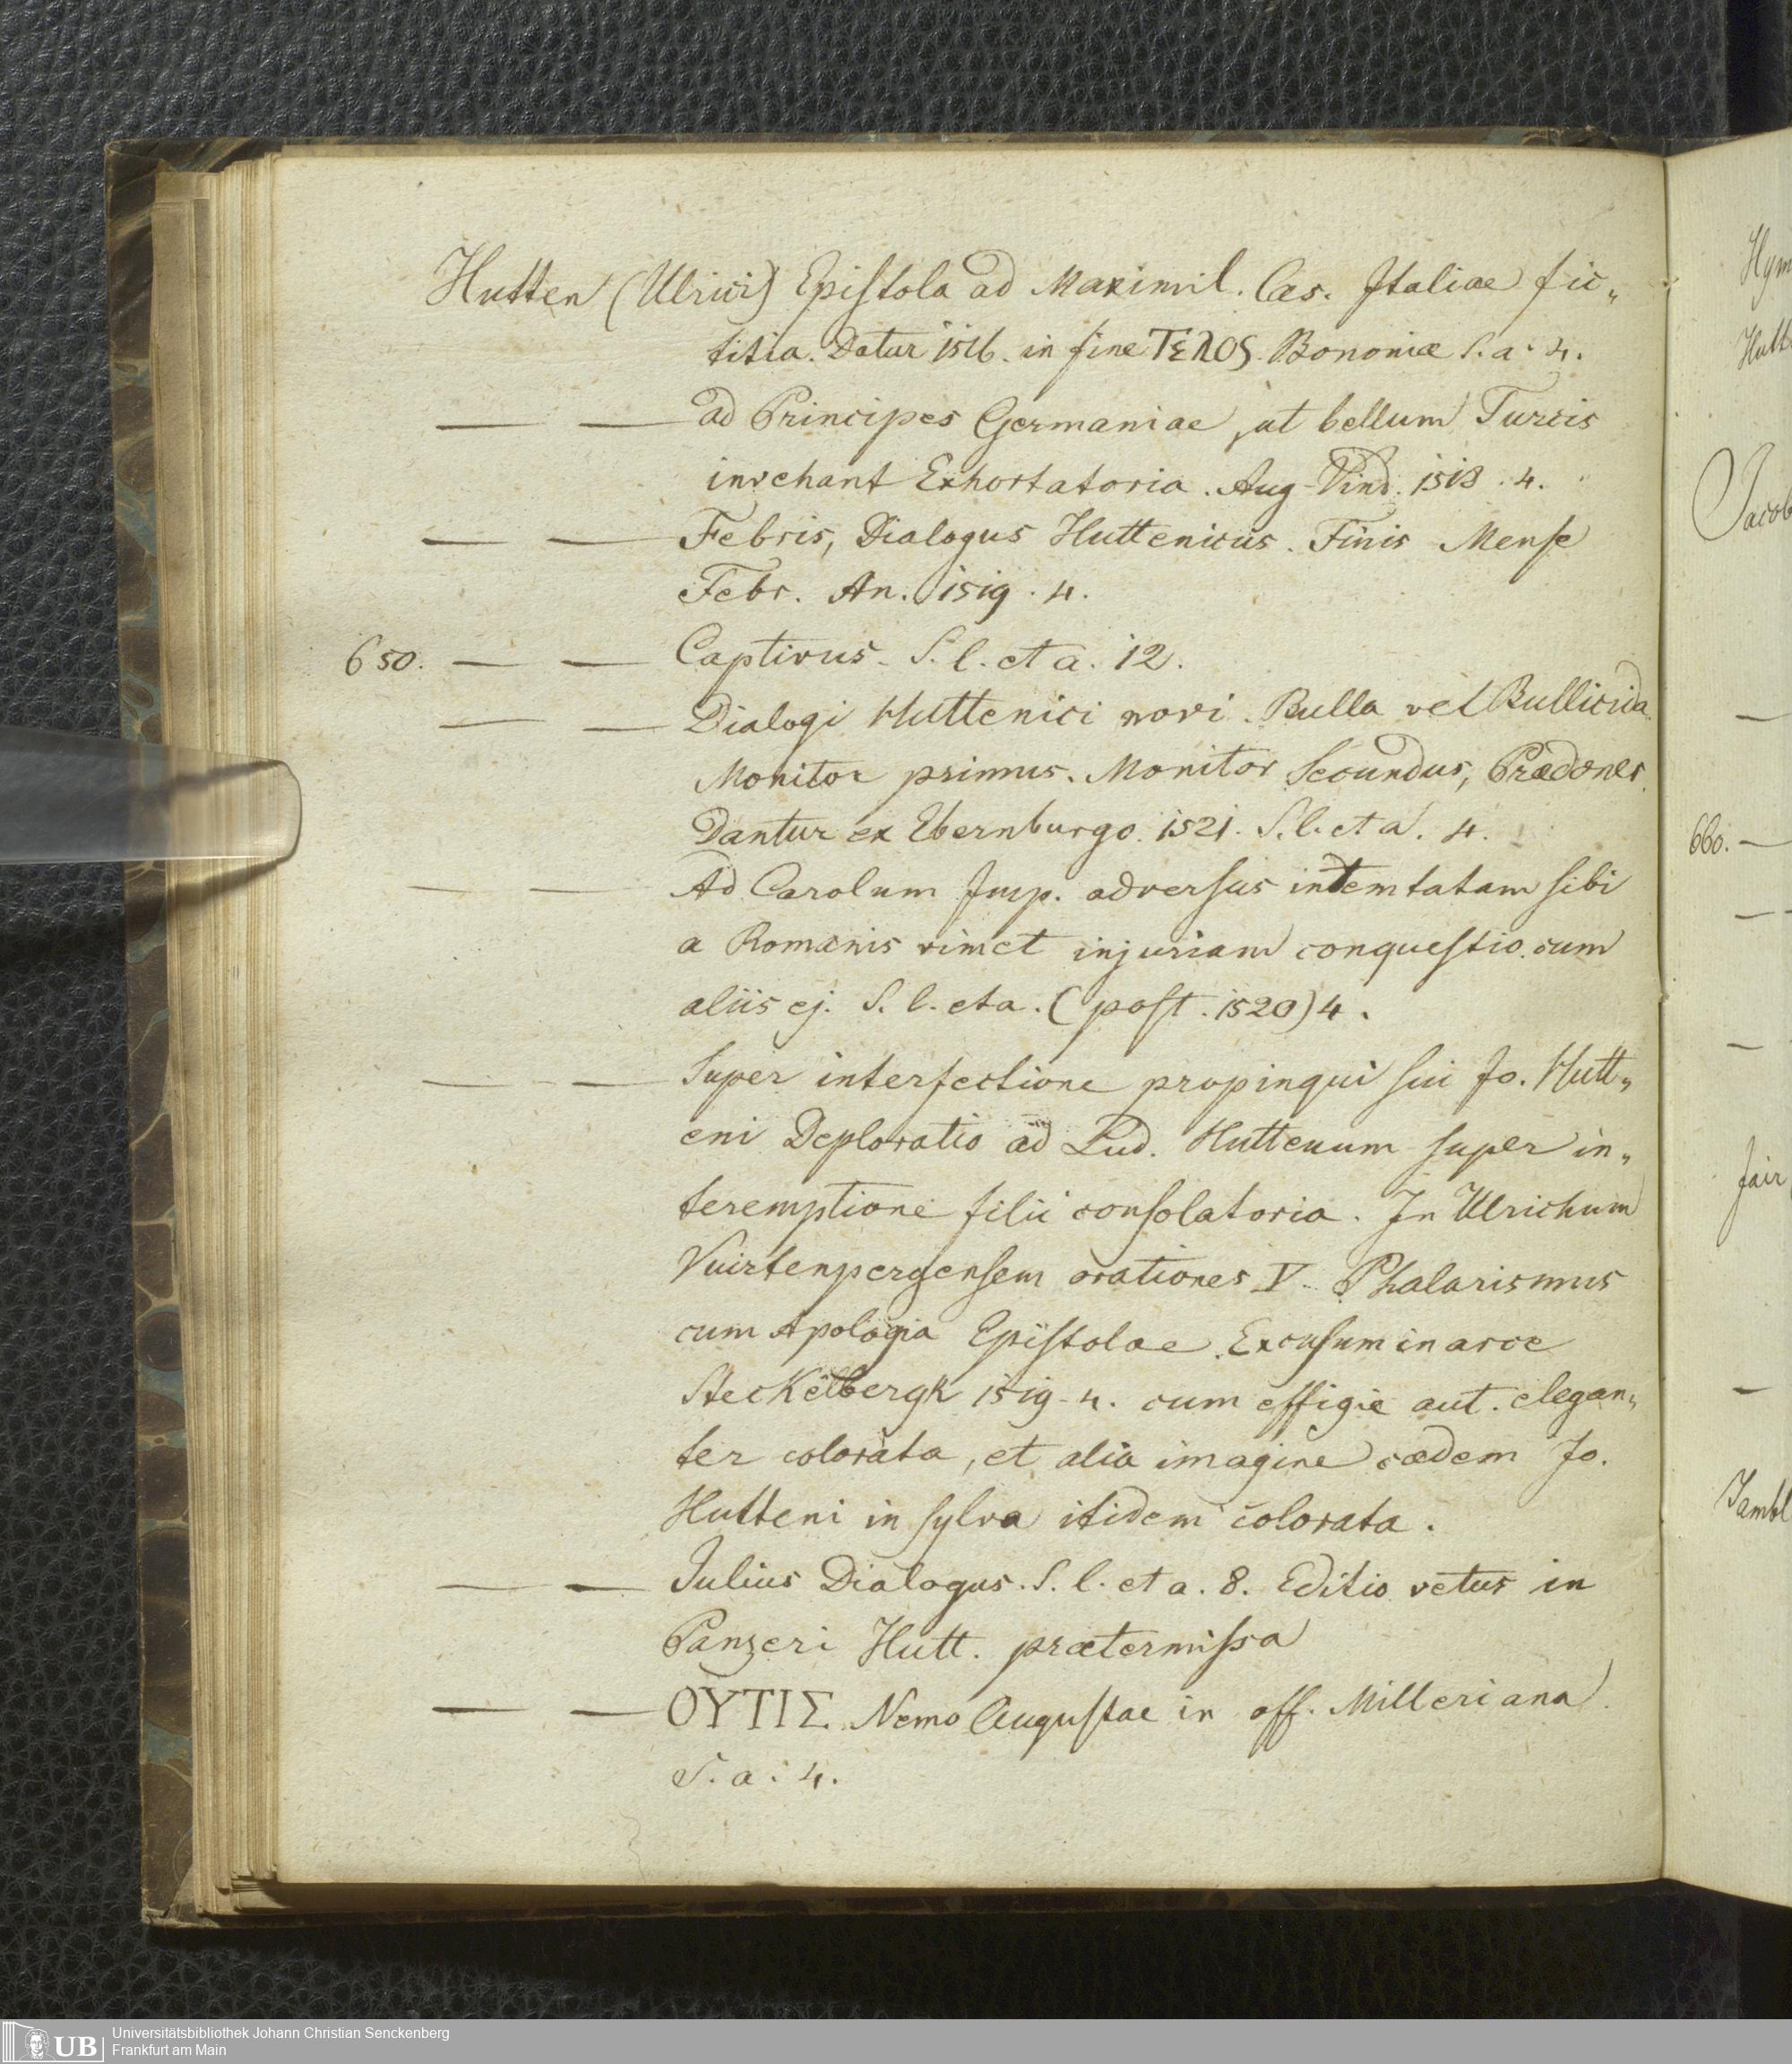 Hutten (Ulrici) Epiſtola ad Maximil. Cæs. Italiae fic„
titia. Datur 1516. in fine Τελος. Bononiæ S. a. 4.
— — ad Principes Germaniae, ut bellum Turcis
invehant Exhortatoria. Aug. Vind. 1518. 4.
— — Febris, Dialogus Huttenicus. Finis Menſe
Febr. An. 1519. 4.
650. — — Captivus. S. l. et a. 12.
— — Dialogi Huttenici novi. Bulla vel Bullicida.
Monitor primus. Monitor Secundus, Prædones.
Dantur ex Ebernburgo. 1521. S. l. et a. 4.
— — Ad Carolum Imp. adverſus intemtatam ſibi
a Romanis vim et injuriam conqueſtio. cum
aliis ej. S. l. et a. (poſt. 1520) 4.
— — Super interfectione propinqui ſui Jo. Hutt„
eni Deploratio ad Lud. Huttenum ſuper in„
teremptione filii conſolatoria. In Ulrichum
Vuirtenpergenſem orationes V. Phalarismus
cum Apologia Epiſtolae. Excuſum in arce
Steckelbergk 1519. 4. cum effigie aut. elegan„
ter colorata, et alia imagine cædem Jo.
Hutteni in ſylva itidem colorata.
— — Julius Dialogus. S. l. et a. 8. Editio vetus in
Panzeri Hutt. prætermiſsa
— — ΟΥΤΙΣ. Nemo Auguſtae in off. Milleriana
S. a. 4.
Hym
Hutt
Jacob
—
660. —
—
—
fair
—
Jambl
UB
Universitätsbibliothek Johann Christian Senckenberg
Frankfurt am Main